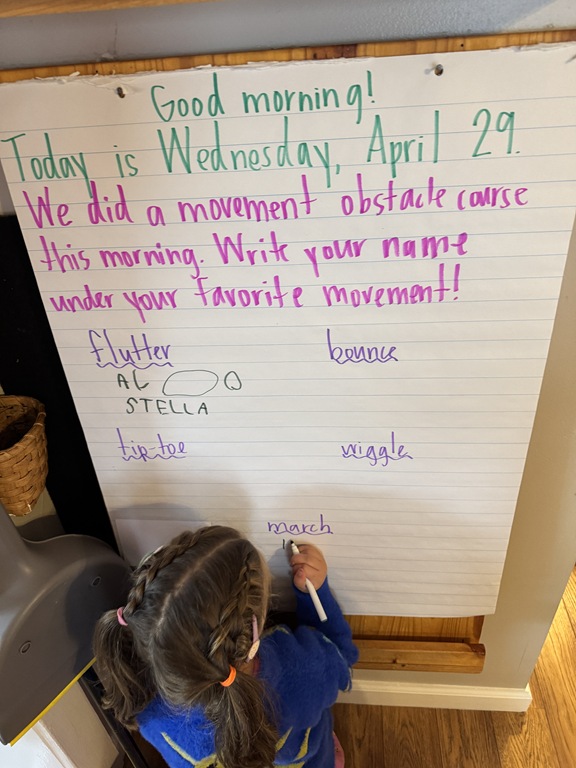 Good morning!
Today is Wednesday, April 29.
We did a movement obstacle course
this morning. Write your name
under your favorite movement!
flutter bounce
STELLA
tip-toe wiggle
march